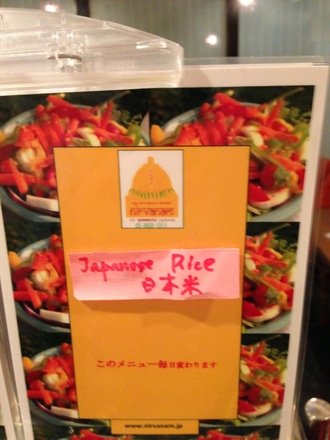 nirvanam
Japanese Rice
日本米
このメニュー毎日変わります
www.nirvanam.jp